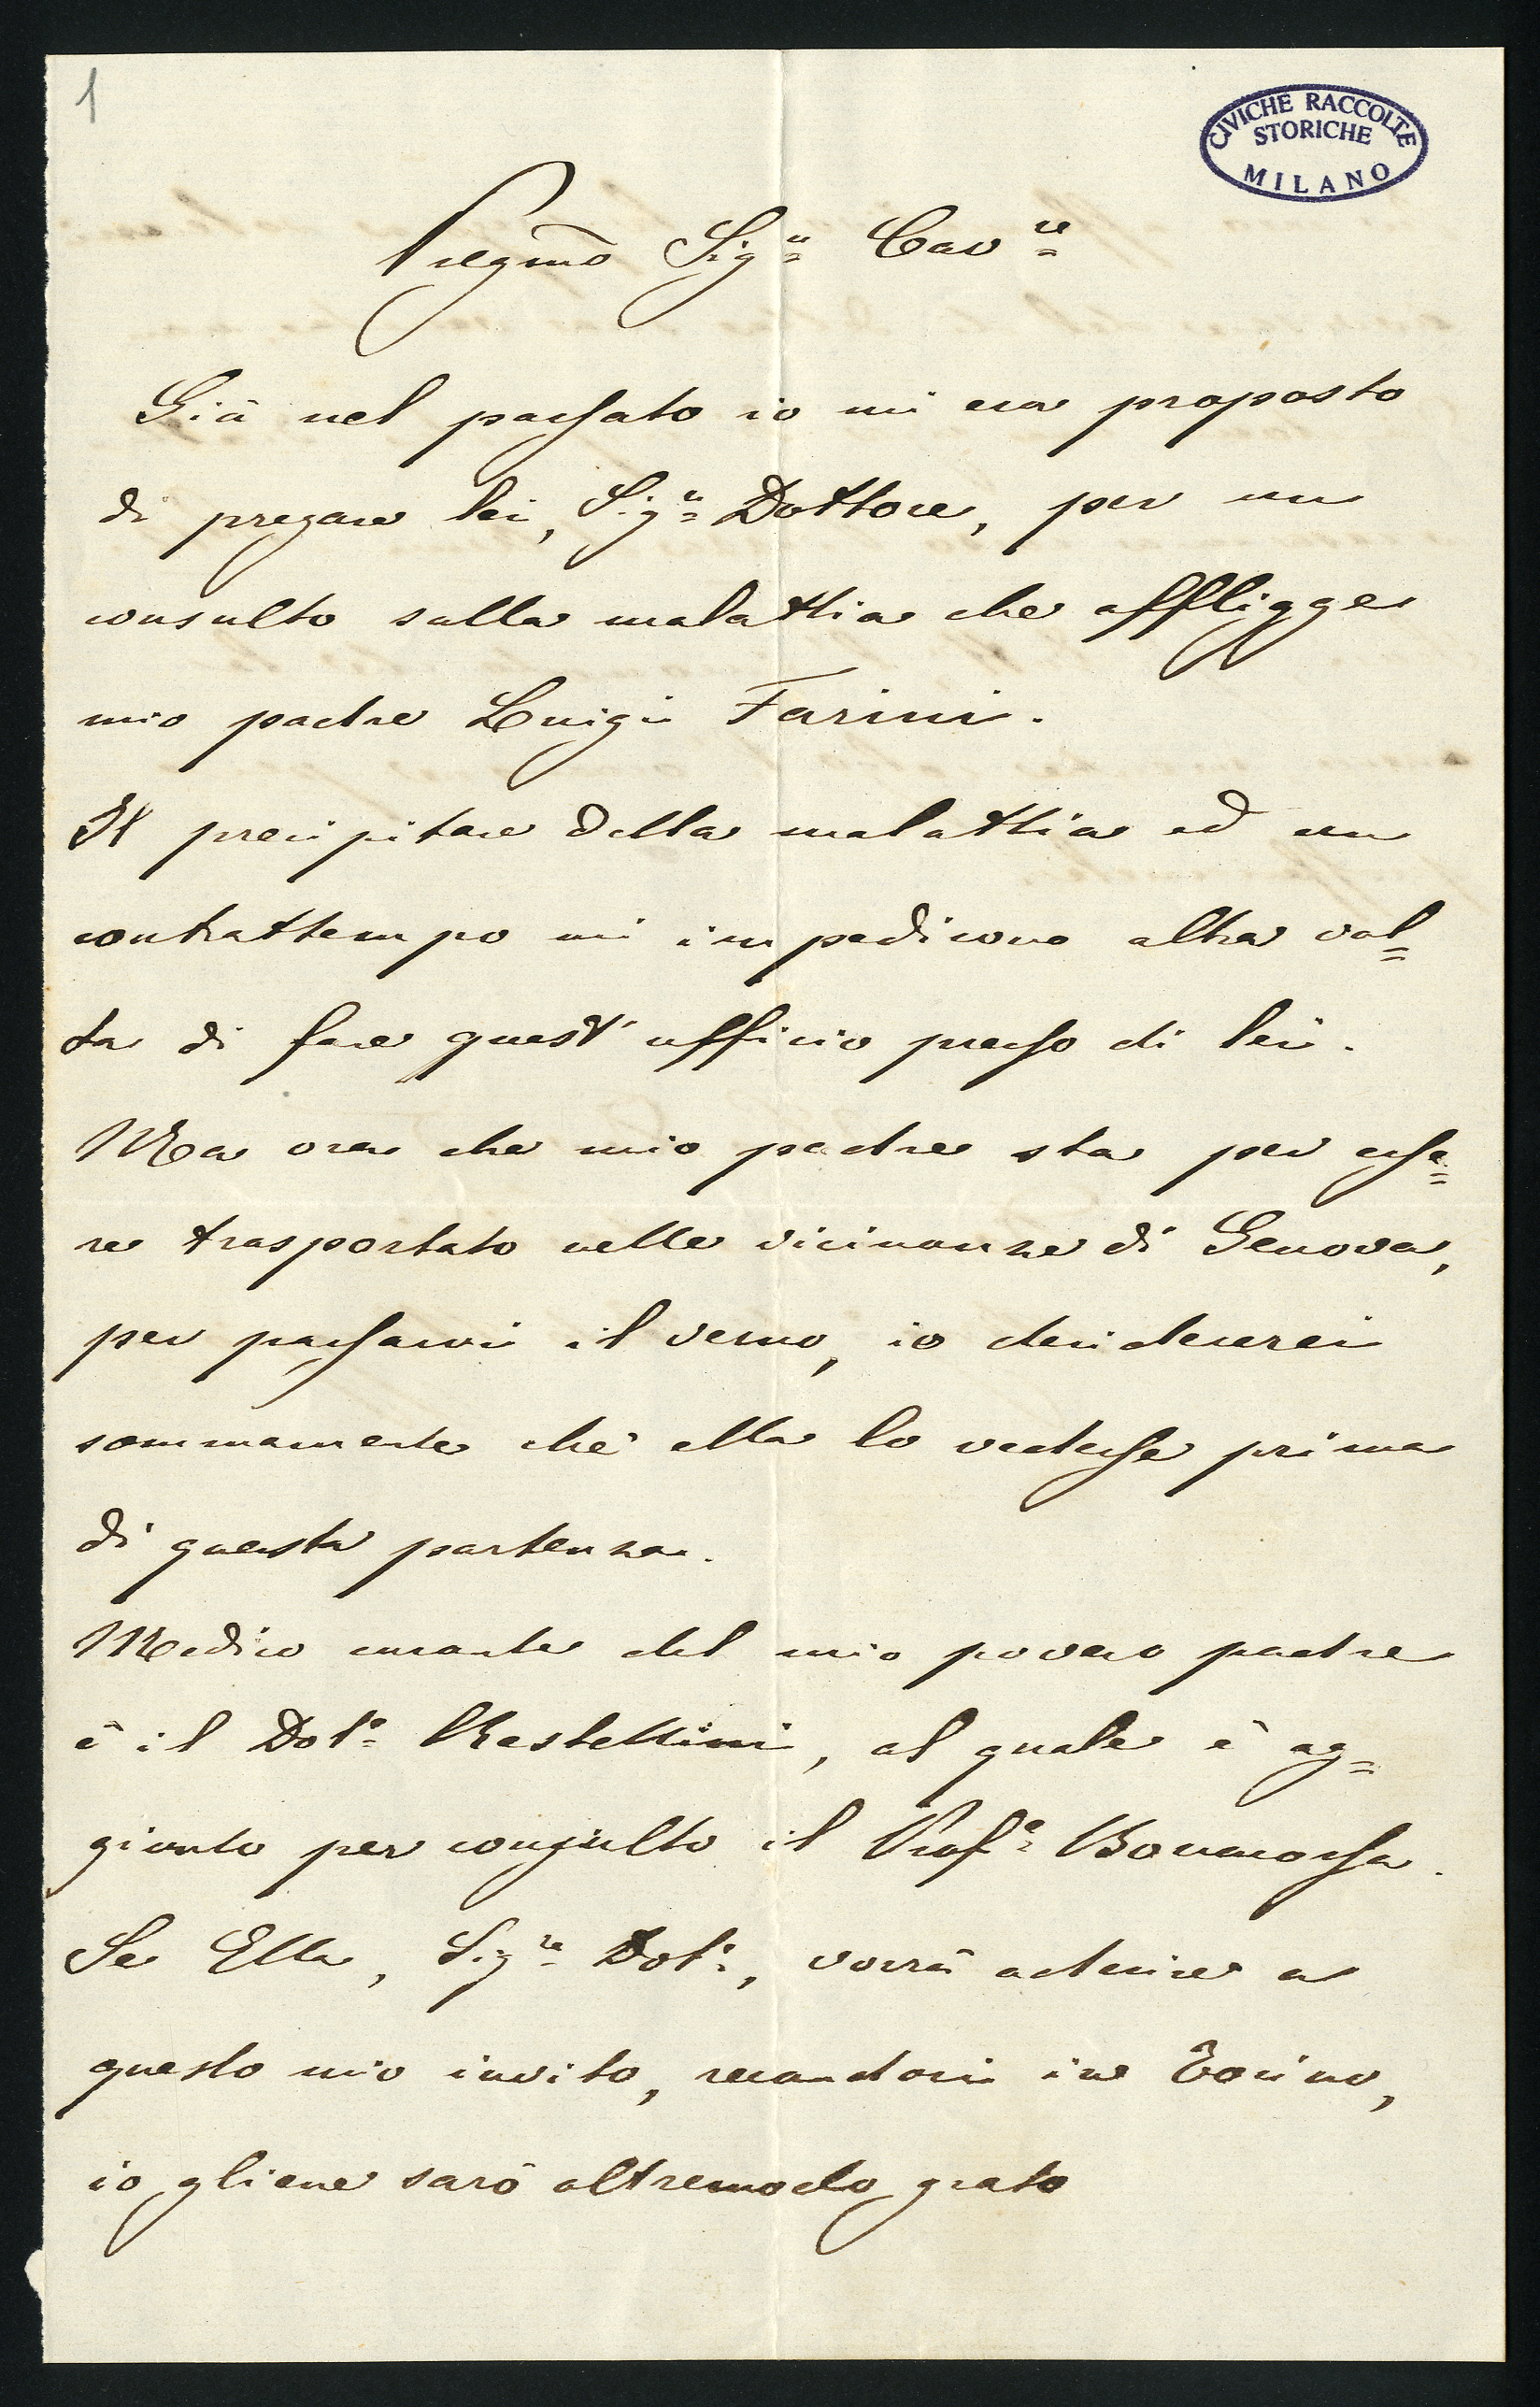 1
CIVICHE RACCOLTE
STORICHE
MILANO
Pregmo Sigre Cavre
Già nel passato io mi era proposto
di pregare lei, Sigre Dottore, per un
consulto sulla malattia che affligge
mio padre Luigi Farini.
Il precipitare della malattia ed un
contrattempo mi impedirono altra vol=
ta di fare quest'ufficio presso di lei.
Ma ora che mio padre sta per esse=
re trasportato nelle vicinanze di Genova,
per passarvi il verno, io desidererei
sommamente che ella lo vedesse prima
di questa partenza.
Medico curante del mio povero padre
è il Dote Restellini, al quale è ag=
giunto per consulto il Profe Bonacossa.
Se Ella, Sigre Dote, vorrà aderire a
questo mio invito, recandosi in Torino,
io gliene sarò oltremodo grato